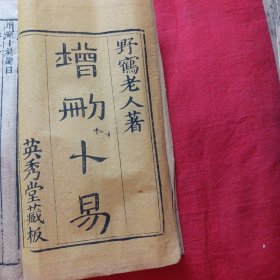 野鶴老人著
增刪卜易
英秀堂藏板